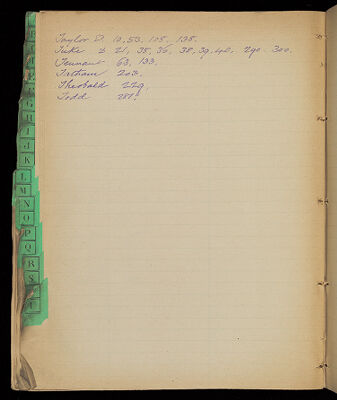 Taylor D. 10, 53, 105, 135.
21, 35, 36, 38, 39, 40, 290, 300.
Tennant 63, 133.
Tatham 203.
Theobald 229.
Todd 281.
G
H
I
J
K
L
M
N
O
P
Q
R
S